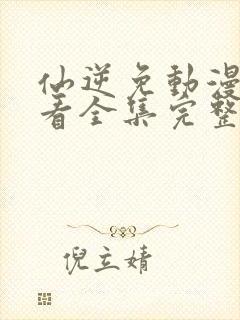 仙逆免動漫
看全集完整
倪立婧